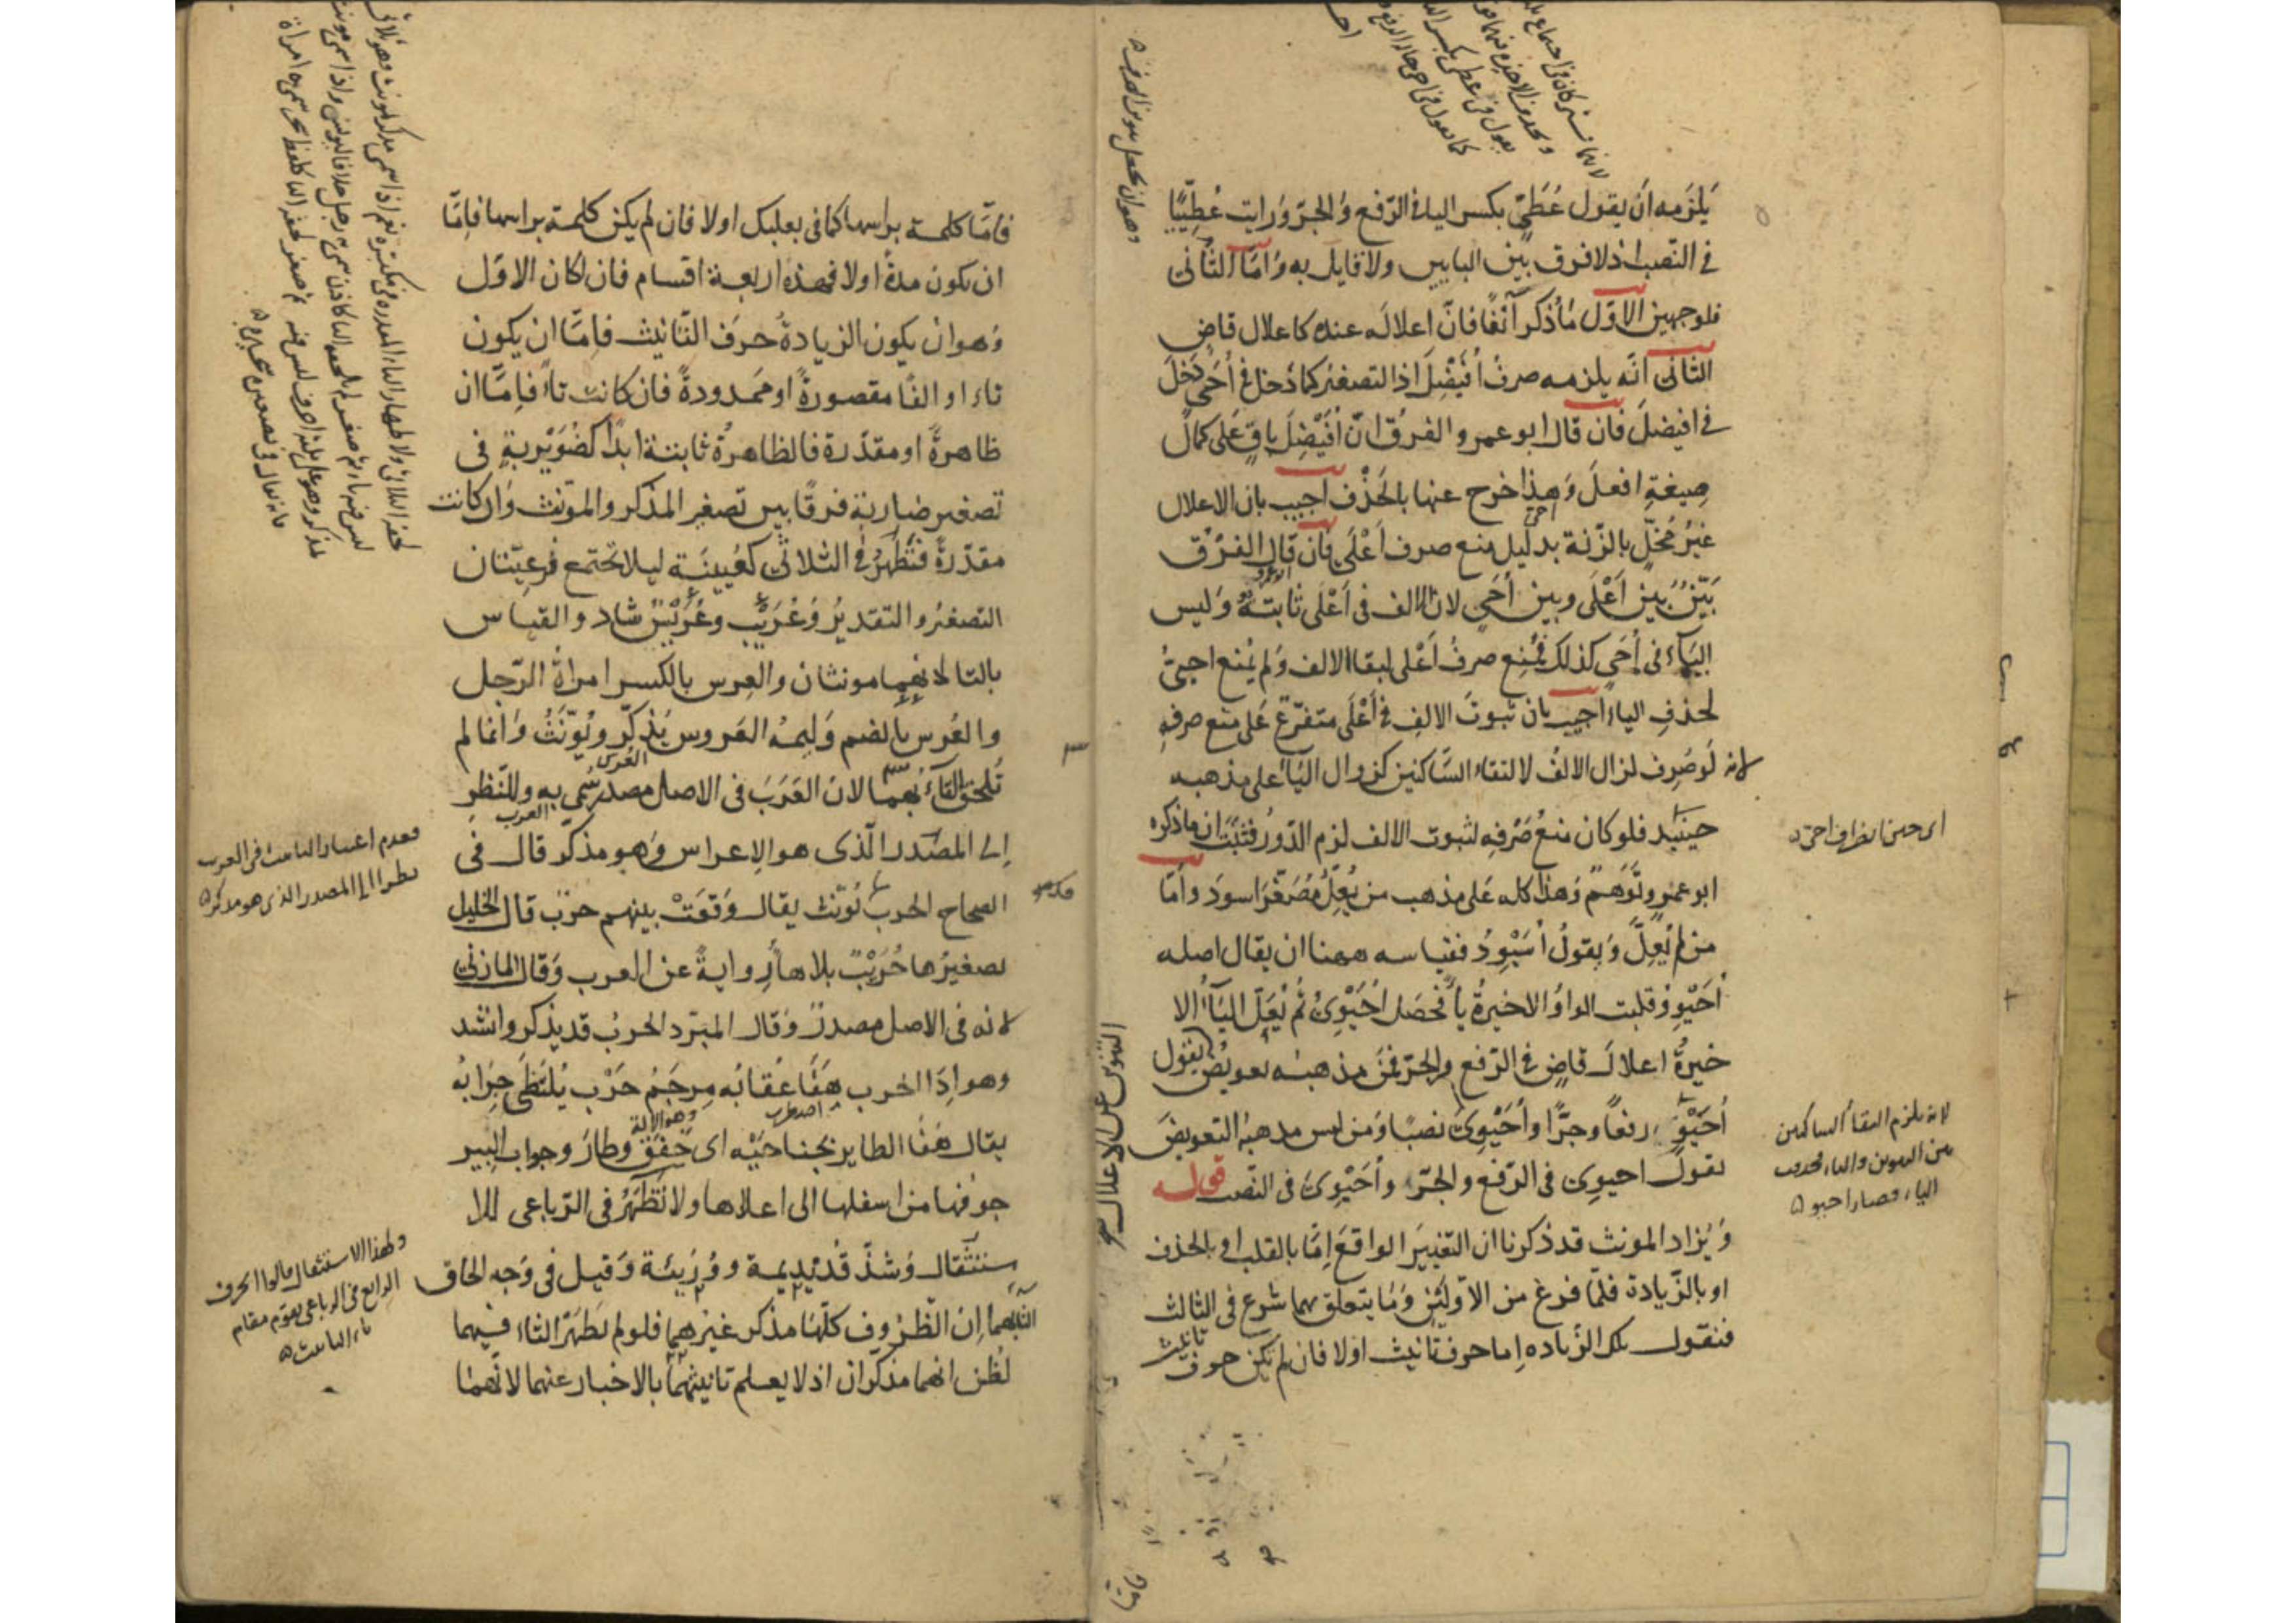 يلزمه ان يقول عُطَيّ بكسر اليا في الرفع والجر ورايت عُطيِّيًا
في النصب اذ لا فرق بين البابين ولا قايل به وامّا الثاني
فلوجهين الاوّل ما ذكر آنفًا فانّ اعلاله عنده كاعلال قاضٍ
الثاني انّه يلزمه صرفُ اُفَيْضِلَ اذ التصغير كما دخل في اُحَيّ دخل
في افيضلَ فان قال ابو عمرو الفرق انّ اُفَيْضِلَ باقٍ على كمال
صيغةِ افعلَ وهذا خرج عنها بالحذف اجيب بان الاعلال
غيرُ مُخلٍّ بالزنة بدليل منع صرف اَعْلَى فان قال الفرق
بيّنٌ بين اَعْلَى وبين اُحَيّ لان الالف في اَعْلَى ثابتة وليس
الياء في اُحَيّ كذلك فمُنِع صرفُ اَعْلى لبقا الالف ولم يُمنع احيّ
لحذفِ الياء اجيب بان ثبوتَ الالفِ في اَعْلَى متفرّع على منع صرفهِ
لانه لو صُرِف لزال الالفُ لالتقاء الساكنين كزوال الياء على مذهبه
حينيذ فلو كان منعُ صَرْفِه لثبوت الالف لزم الدّورُ فثبت ان ما ذكره
ابو عمرو توهّم وهذا كله على مذهب من يُعِلُّ مُصَغَّرَ اسودَ وامّا
من لم يُعِلَّ ويقولُ اُسَيْوِدُ فقياسه ههنا ان يقال اصله
اُحَيْوِوُ قلبت الواوُ الاخيرةُ ياءً فحصل اُحَيْوِيُ ثم يُعَلّ الياءُ الا
خيرةُ اعلالَ قاضٍ في الرّفع والجرّ فمن مذهبه تعويض يقول
اُحَيْوٍ رفعًا وجرًّا واُحَيْوِيَ نصبًا ومن ليس مذهبه التعويضَ
يقول احيوِي في الرّفع والجرّ واُحَيْوِيَ في النّصب قوله
ويُزاد المونث قد ذكرنا ان التغييرَ الواقعَ اِمّا بالقلب او بالحذف
او بالزّيادة فلمّا فرغ من الاوّلين وما يتعلق بهما شرع في الثالث
فنقول تلك الزيادة اِما حرف تانيث اولا فان لم يكن حرف تانيث
اي حين اذ صار احيّ
لانه يلزم التقاء الساكنين
بين التنوين والياء فحذف
الياء فصار احيو
فامّا كلمة براسها كما في بعلبك اولا فان لم يكن كلمة براسها فامّا
ان يكون مدةً اولا فهذه اربعة اقسام فان كان الاوّل
وهو ان يكون الزيادةُ حرفَ التّانيث فاِمّا ان يكون
تاء او الفًا مقصورةً او ممدودةً فان كانت تاءً فاِمّا ان
ظاهرةً او مقدّرة فالظاهرةُ ثابتة ابدًا كضُوَيْرِبةٍ في
تصغير ضاربة فرقًا بين تصغير المذكر والمونث وان كانت
مقدّرةً فتُظهرُ في الثلاثي كعُيينة ليلا تجتمع فرعيّتان
التصغير والتقدير وعُرَيْب وعُرَيْس شاذ والقياس
بالتا لانهما مونثان والعِرس بالكسر امراةُ الرّجل
والعُرس بالضم وليمة العَروس يُذكّر ويُونّثُ وانما لم
تُلحق التاءُ بهما لان العَرَبَ في الاصل مصدر سُمّي به والنّظر
اِلى المصدر الّذي هو الاِعراس وهو مذكّر قال في
الصحاح الحرب تُونّث يقال وَقَعَتْ بينهم حربٌ قال الخليل
تصغيرُها حُرَيْبٌ بلا هاءٍ روايةً عن العرب وقال المازني
لانه في الاصل مصدرٌ وقال المبرّد الحربُ قد يذكر وانشد
وهو اِذَا الحرب هَفَا عُقابُه مِرجَمُ حَرْب يَلتَظي حِرَابُه
يقال هَفا الطاير بجناحَيْه اي خَفَقَ وطارَ وجِراب البير
جوفها من اسفلها الى اعلاها ولا تُظهَرُ في الرّباعي للا
ستثقال وشذّ قُدَيْديمة ووُرَيئة وقيل في وجه الحاق
التاء بهما اِنّ الظُروف كلّها مذكر غيرهما فلو لم تظهر التاء فيهما
لظُن انهما مذكران اذ لا يعلم تانيثهما بالاخبار عنهما لانّهما
فعدم اعتبار التانيث في العرب
نظرا الى المصدر الذي هو مذكر
ولهذا الاستثقال قالوا الحرف
الرابع في الرباعي يقوم مقام
تاء التانيث